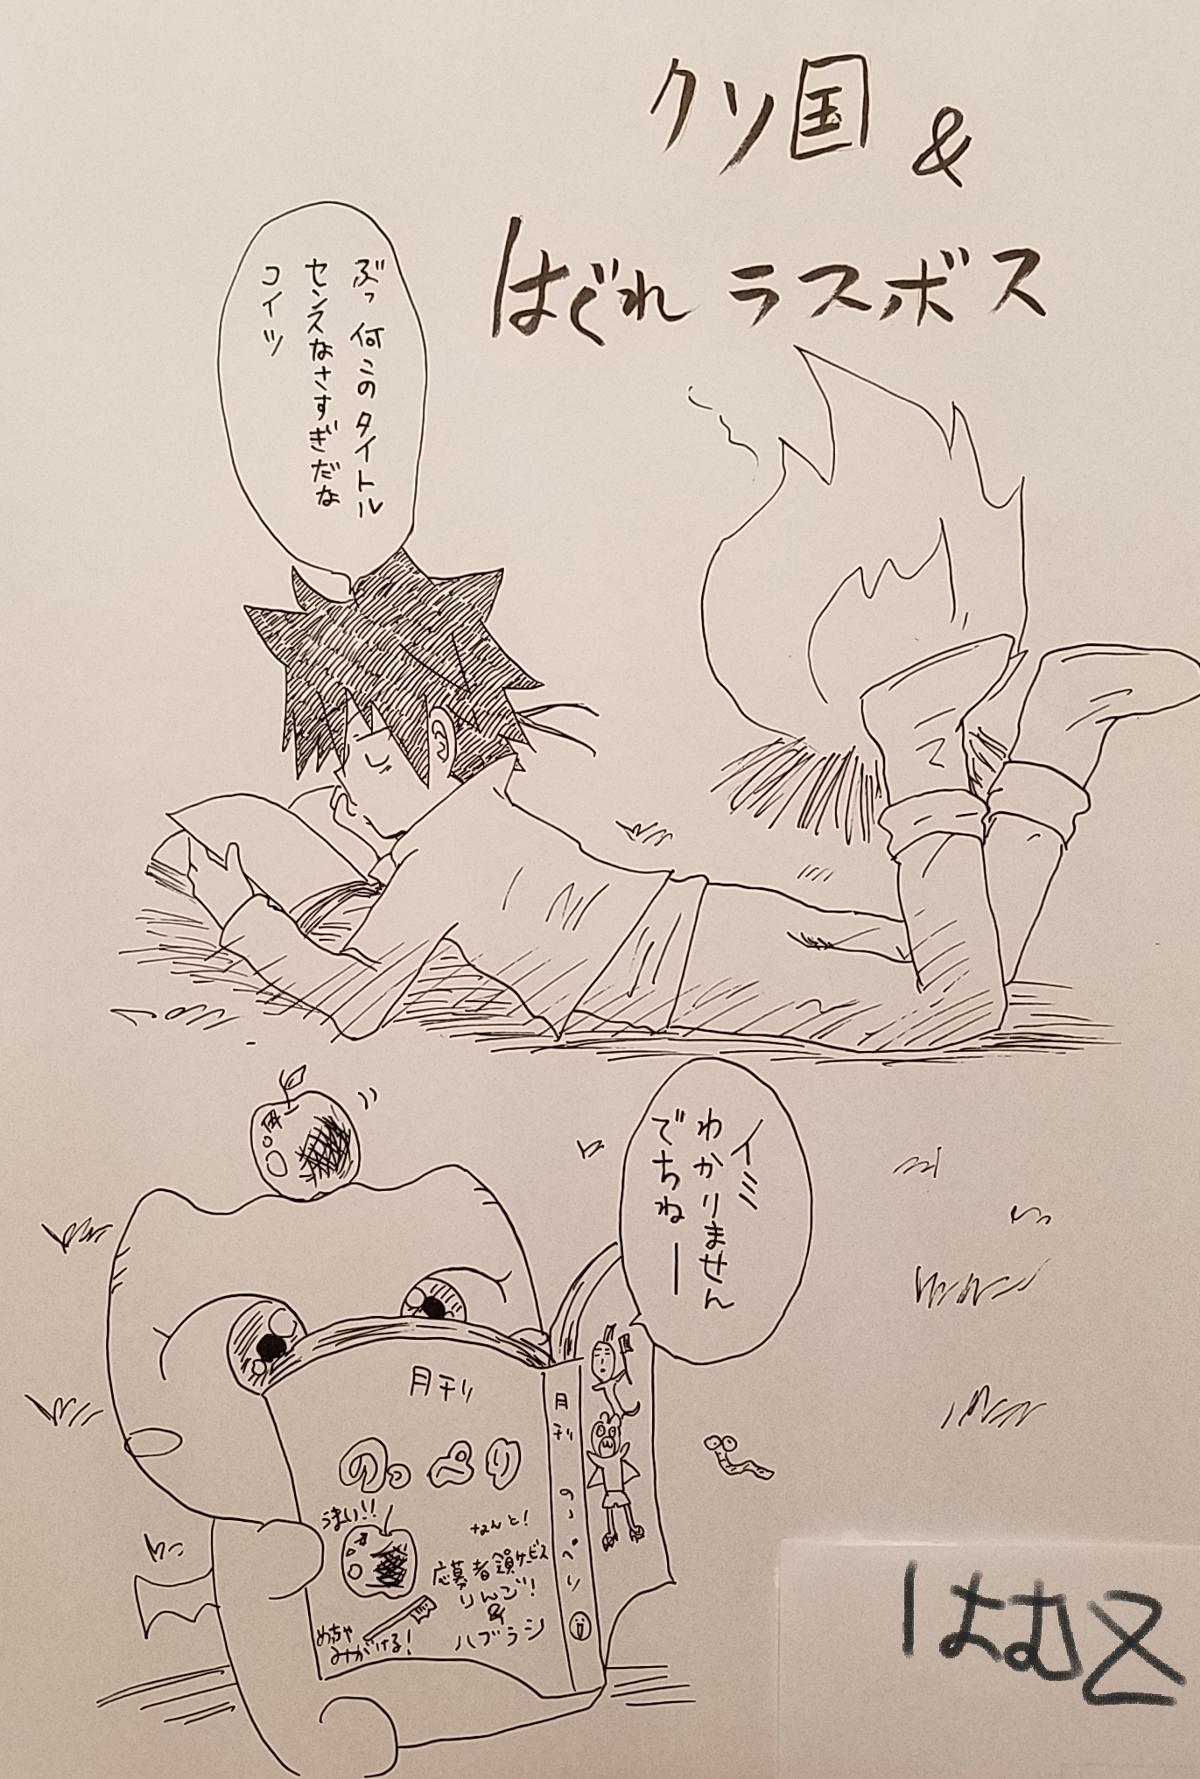 クソ国 &
はぐれ ラスボス
ぶっ 何このタイトル
センスなさすぎだな
コイツ
イミ
わかりません
でちねー
月刊
のっぺり
うまい!!
なんと!
応募者
りんご!
&
ハブラシ
めちゃ
みがける!
月刊 のっぺり
はむ